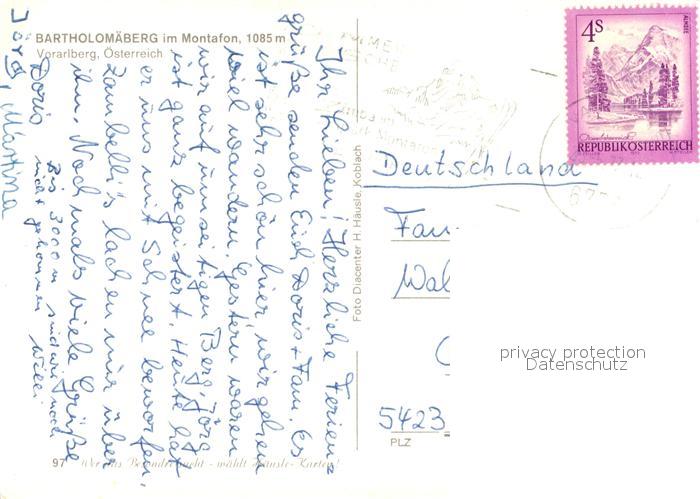 BARTHOLOMÄBERG im Montafon, 1085 m
Vorarlberg, Österreich
Ihr Lieben! Herzliche Ferien=
grüße senden Euch Doris + Fam. Es
ist sehr schön hier, wir gehen
viel wandern. Gestern waren
wir auf unseitigen Berg, Jörg
ist ganz begeistert. Heute hat
er uns mit Schnee beworfen.
Zambelli's lachen nur über
ihn. Nochmals viele Grüße
Doris
Jörg, Martina
Bis 3000 m sind wir noch
nicht gekommen Willi
Foto Diacenter H. Häusle, Koblach
4s
ALMSEE
REPUBLIK ÖSTERREICH
Deutschland
Fam
Wal
5423
PLZ
privacy protection
Datenschutz
97 Wer das Besondre sucht - wählt Häusle-Karten!